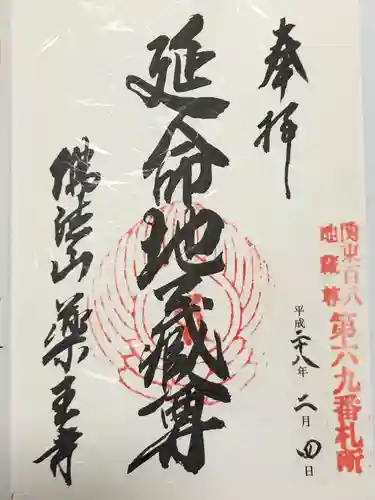 奉拝
関東百八
地蔵尊
第六九番札所
平成二十八年 二月四日
延命地蔵尊
佛法山 薬王寺